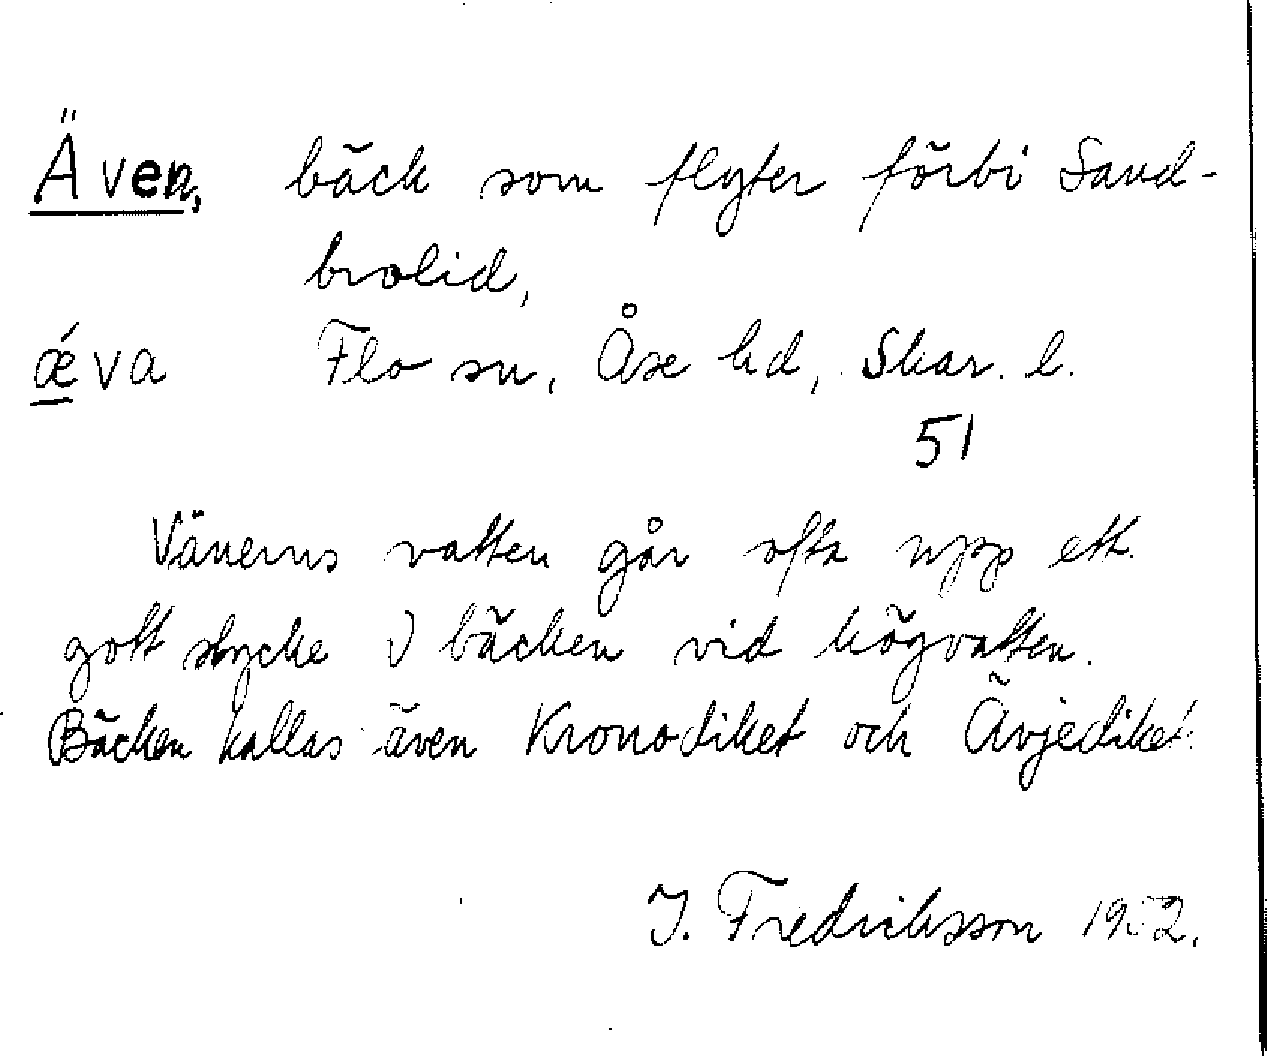 Även, bäck som flyter förbi Sand-
brolid,
ǽva Flo sn, Åse hd, Skar. l.
51
Vänerns vatten går ofta upp ett
gott stycke i bäcken vid högvatten.
Bäcken kallas även Kronodiket och Ävjediket.
J. Fredriksson 1932.